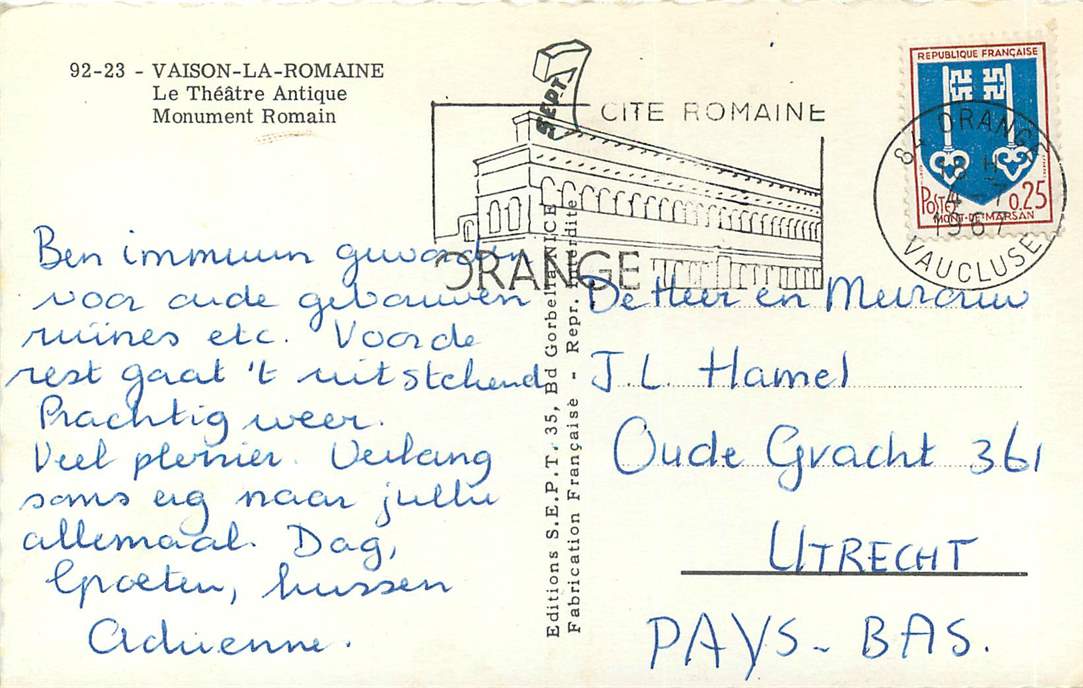 92-23 - VAISON-LA-ROMAINE
Le Théâtre Antique
Monument Romain
7 SEPTS
CITE ROMAINE
ORANGE
REPUBLIQUE FRANÇAISE
POSTES 0,25
MONT-DE-MARSAN
84 ORANGE
18 H
4 - 7
1967
VAUCLUSE
Ben immuun geworden
voor oude gebouwen
ruïnes etc. Voor de
rest gaat 't uitstekend
Prachtig weer.
Veel plezier. Verlang
soms erg naar jullie
allemaal. Dag,
Groeten, kussen
Adrienne.
Editions S.E.P.T. 35, Bd Gorbella NICE
Fabrication Française - Repr. interdite
De Heer en Mevrouw
J. L. Hamel
Oude Gracht 361
UTRECHT
PAYS-BAS.